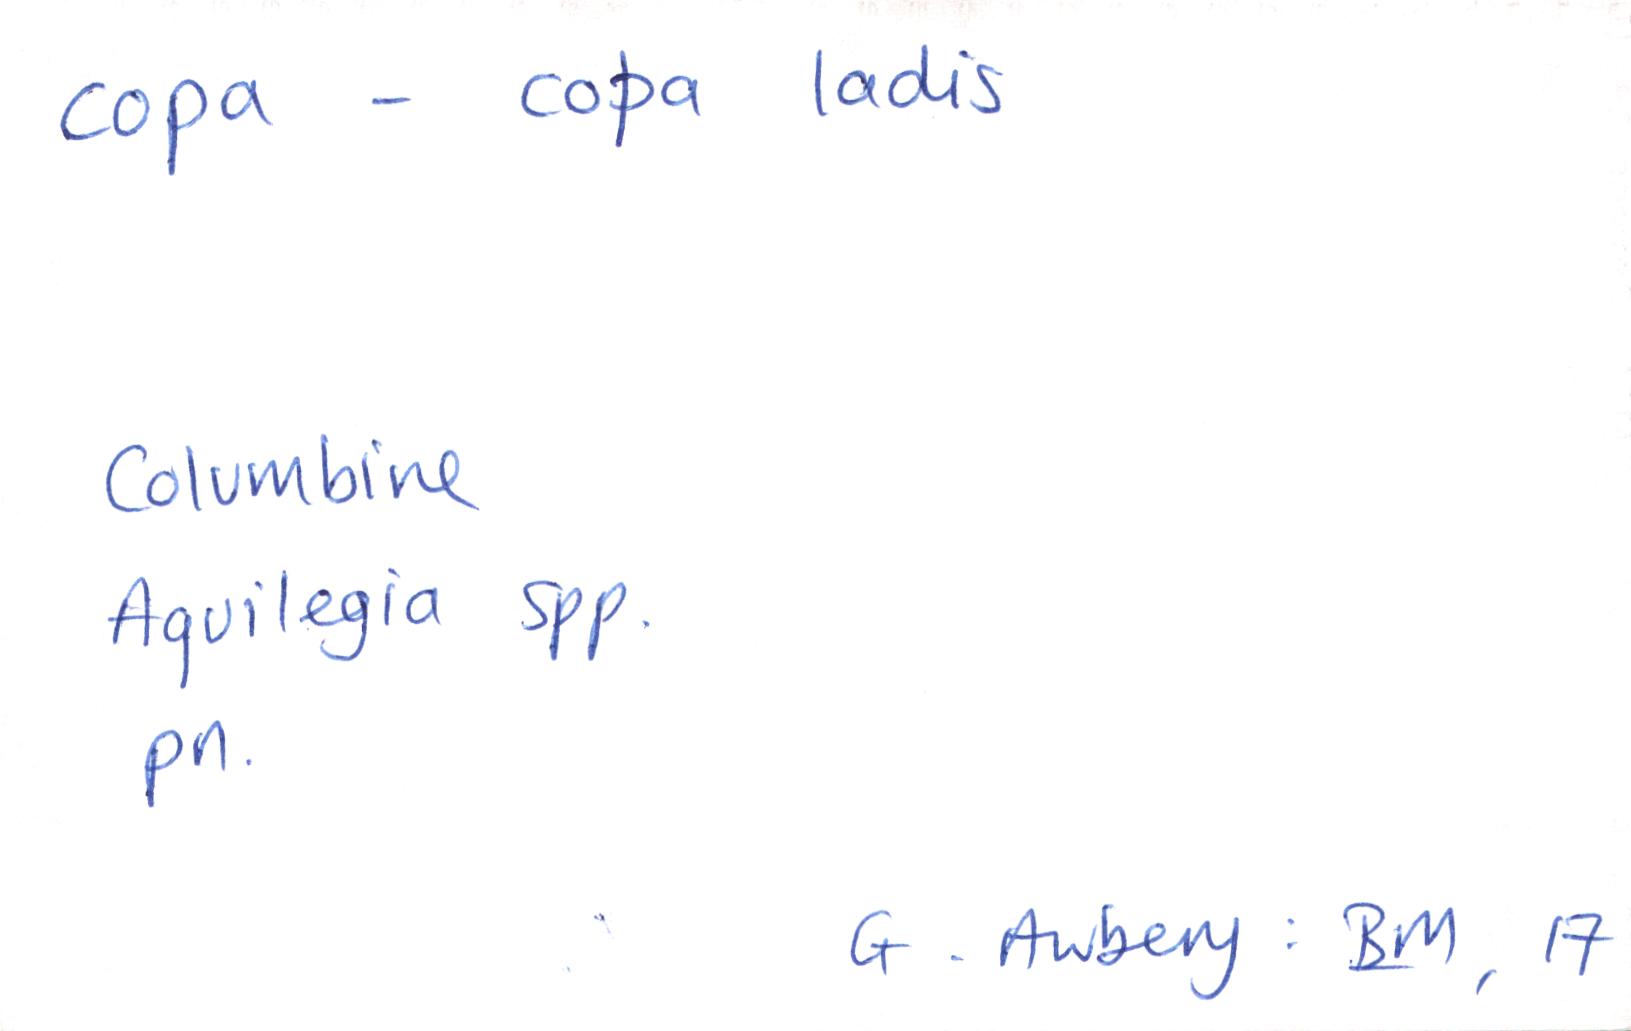 copa - copa ladis
Columbine
Aquilegia spp.
pn.
G. Awbery: BM, 17